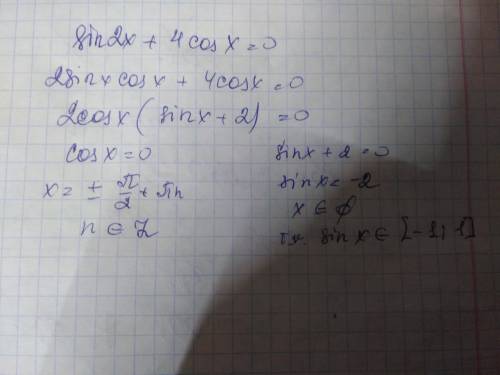 sin2x + 4cosx=0
2sinxcosx + 4cosx=0
2cosx( sinx+2) =0
cosx=0
x= ± π/2 + πn
n ∈ Z
sinx+2=0
sinx=-2
x ∈ ∅
т.к. sinx ∈ [-1; 1]